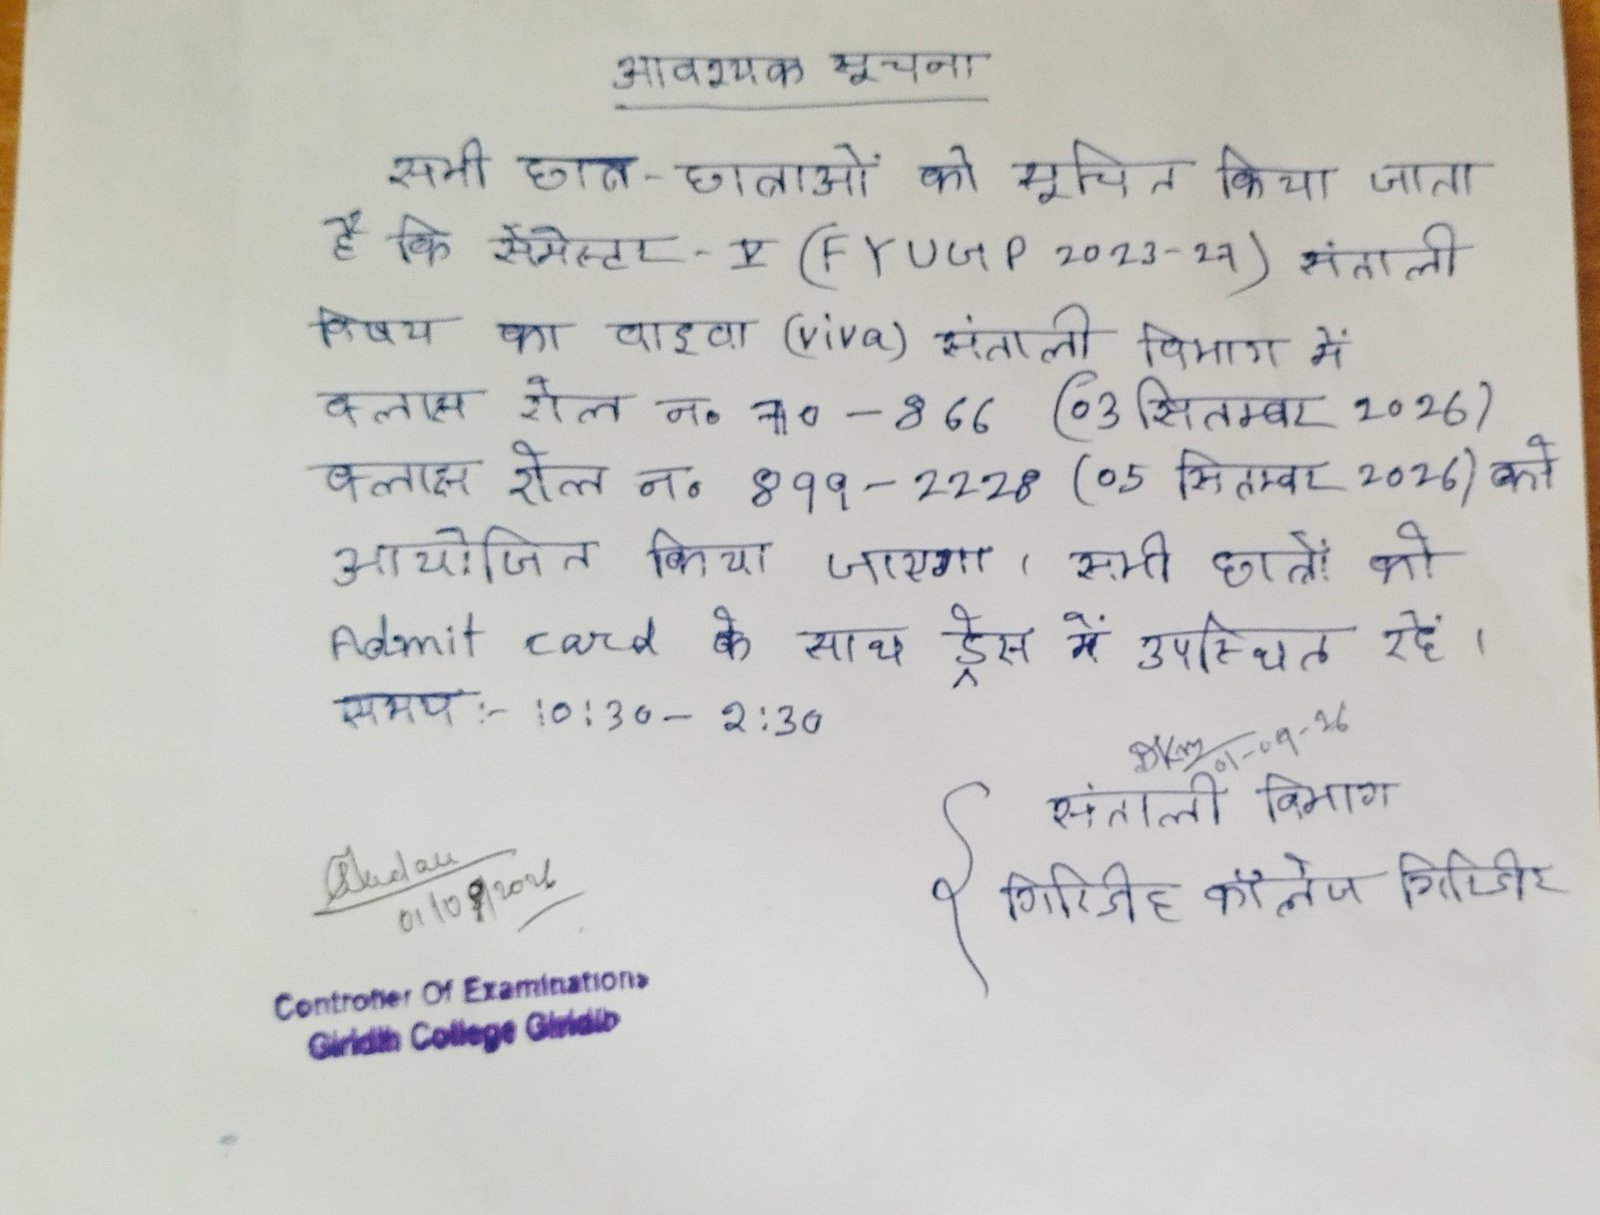 आवश्यक सूचना
सभी छात्र-छात्राओं को सूचित किया जाता
है कि सेमेस्टर - V (FYUGP 2023-27) संताली
विषय का वाइवा (viva) संताली विभाग में
क्लास रोल न० 70 - 866 (03 सितम्बर 2026)
क्लास रोल न० 899 - 2228 (05 सितम्बर 2026) को
आयोजित किया जाएगा । सभी छात्रों को
Admit card के साथ ड्रेस में उपस्थित रहें ।
समय :- 10:30 - 2:30
01-09-26
संताली विभाग
गिरिडीह कॉलेज गिरिडीह
01/09/2026
Controller Of Examinations
Giridih College Giridih